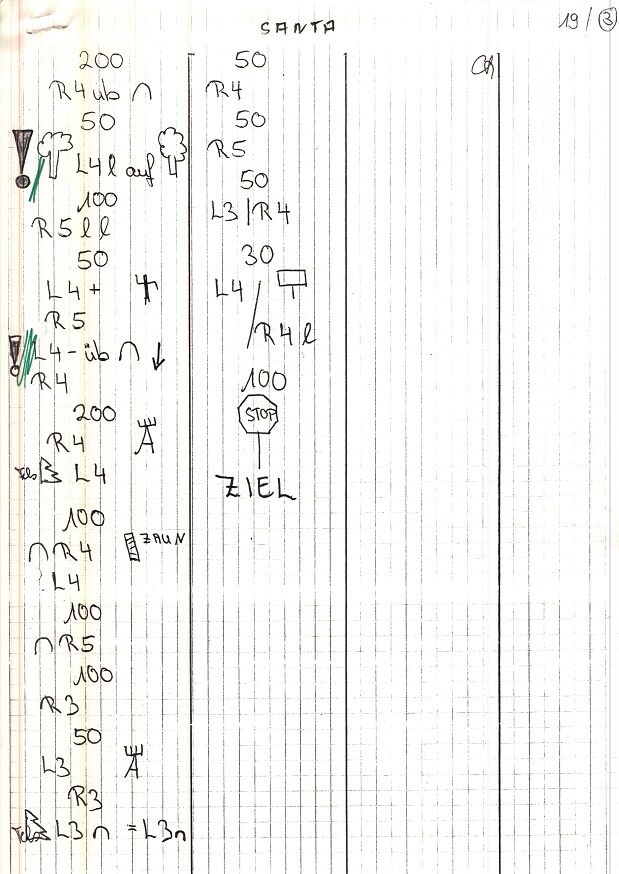 SANTA
19/3
CR
200
R4 üb ∩
50
! L4 l auf
100
R5 l l
50
L4+
R5
! L4- üb ∩ ↓
R4
200
R4
Fels L4
100
∩ R4 ZAUN
L4
100
∩ R5
100
R3
50
L3
R3
Fels L3 ∩ = L3 ∩
50
R4
50
R5
50
L3/R4
30
L4
/R4 l
100
STOP
ZIEL